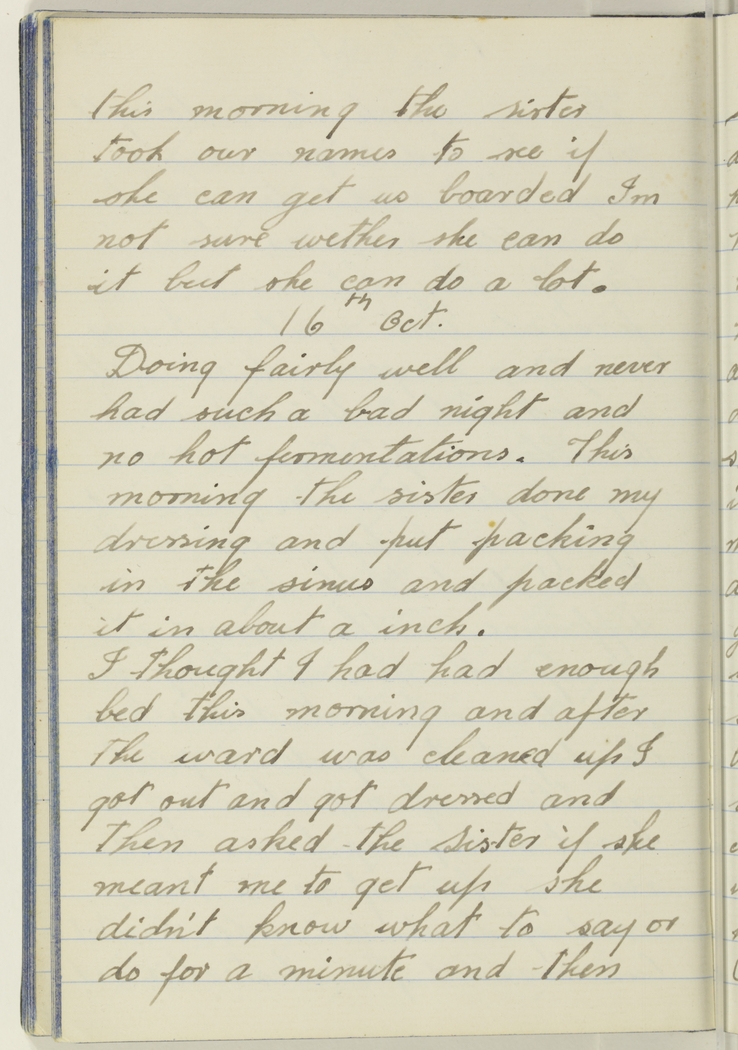 this morning the sister
took our names to see if
she can get us boarded Im
not sure wether she can do
it but she can do a lot.
16th Oct.
Doing fairly well and never
had such a bad night and
no hot fermentations. This
morning the sister done my
dressing and put packing
in the sinus and packed
it in about a inch.
I thought I had had enough
bed this morning and after
the ward was cleaned up I
got out and got dressed and
then asked the Sister if she
meant me to get up she
didn't know what to say or
do for a minute and then